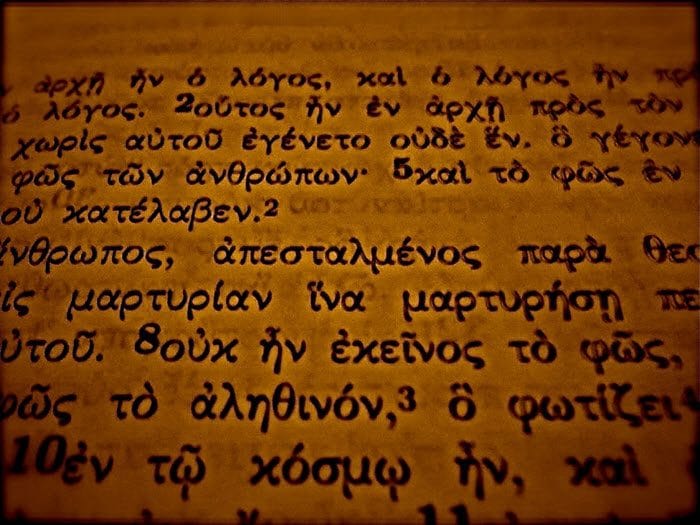 ἀρχῇ ἦν ὁ λόγος, καὶ ὁ λόγος ἦν πρ
ὁ λόγος. 2οὗτος ἦν ἐν ἀρχῇ πρὸς τὸν
χωρὶς αὐτοῦ ἐγένετο οὐδὲ ἕν. ὃ γέγον
φῶς τῶν ἀνθρώπων· 5καὶ τὸ φῶς ἐν
οὐ κατέλαβεν.2
ἄνθρωπος, ἀπεσταλμένος παρὰ θεο
ἰς μαρτυρίαν ἵνα μαρτυρήσῃ πε
ὐτοῦ. 8οὐκ ἦν ἐκεῖνος τὸ φῶς,
φῶς τὸ ἀληθινόν,3 ὃ φωτίζει4
10ἐν τῷ κόσμῳ ἦν, καὶ
11